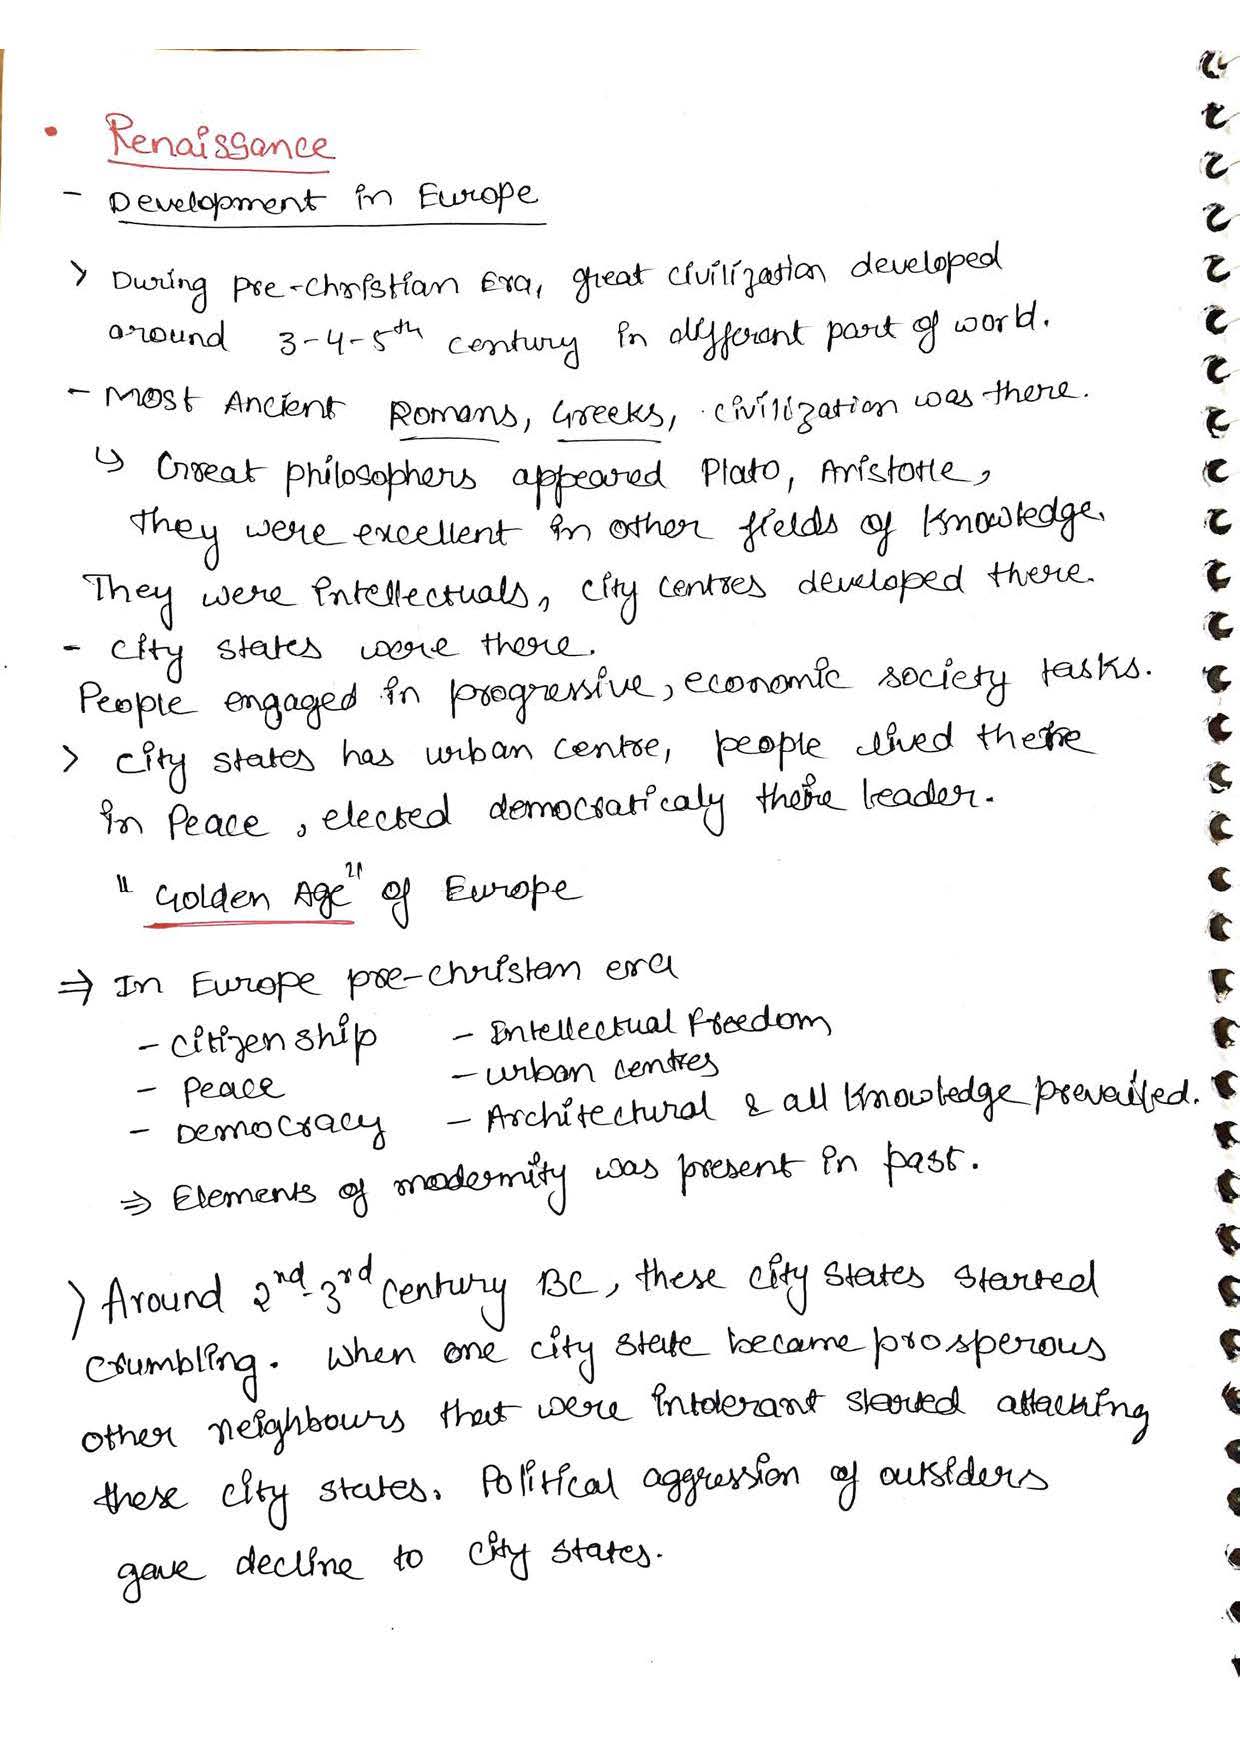 • Renaissance
- Development in Europe
> During pre-christian Era, great civilization developed
around 3-4-5th century in different part of world.
- Most Ancient Romans, Greeks, civilization was there.
↳ Great philosophers appeared Plato, Aristotle,
they were excellent in other fields of knowledge.
They were intellectuals, city centres developed there.
- city states were there.
People engaged in progressive, economic society tasks.
> city states has urban centre, people lived there
in Peace, elected democraticaly their leader.
"Golden Age" of Europe
⇒ In Europe pre-christan era
- citizenship - Intellectual freedom
- Peace - urban centres
- Democracy - Architectural & all knowledge prevailed.
⇒ Elements of modernity was present in past.
> Around 2nd-3rd century BC, these city states started
crumbling. When one city state became prosperous
other neighbours that were intolerant started attacking
these city states. Political aggression of outsiders
gave decline to city states.